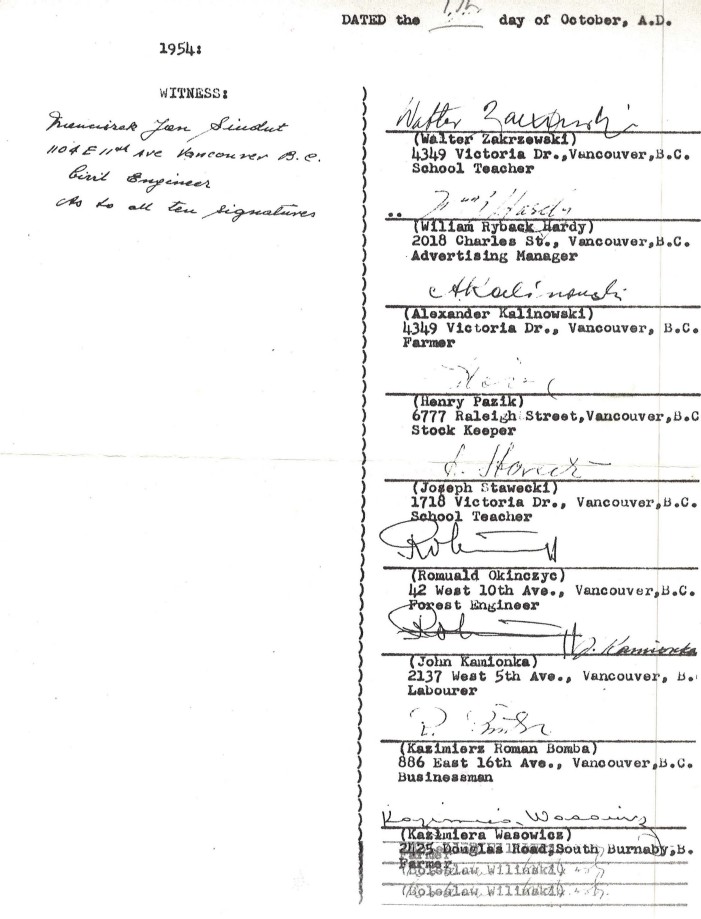 DATED the day of October, A.D.
1954:
WITNESS:
Jan Siudut
1104 E 11th Ave Vancouver B.C.
Civil Engineer
As to all ten signatures
Walter Zakrzewski
(Walter Zakrzewski)
4349 Victoria Dr.,Vancouver,B.C.
School Teacher
Hardy
(Wiliam Ryback Hardy)
2018 Charles St., Vancouver,B.C.
Advertising Manager
AKalinowski
(Alexander Kalinowski)
4349 Victoria Dr., Vancouver, B.C.
Farmer
(Henry Pazik)
6777 Raleigh Street,Vancouver,B.C
Stock Keeper
(Joseph Stawecki)
1718 Victoria Dr., Vancouver,B.C.
School Teacher
(Romuald Okinczyc)
42 West 10th Ave., Vancouver,B.C.
Forest Engineer
J. Kamionka
(John Kamionka)
2137 West 5th Ave., Vancouver, B.
Labourer
(Kazimierz Roman Bomba)
886 East 16th Ave., Vancouver,B.C.
Businessman
Kazimiera Wasowicz
(Kazimiera Wasowicz)
2425 Douglas Road,South Burnaby,B.
Farmer
(Boleslaw Wilinski)
(Boleslaw Wilinski)